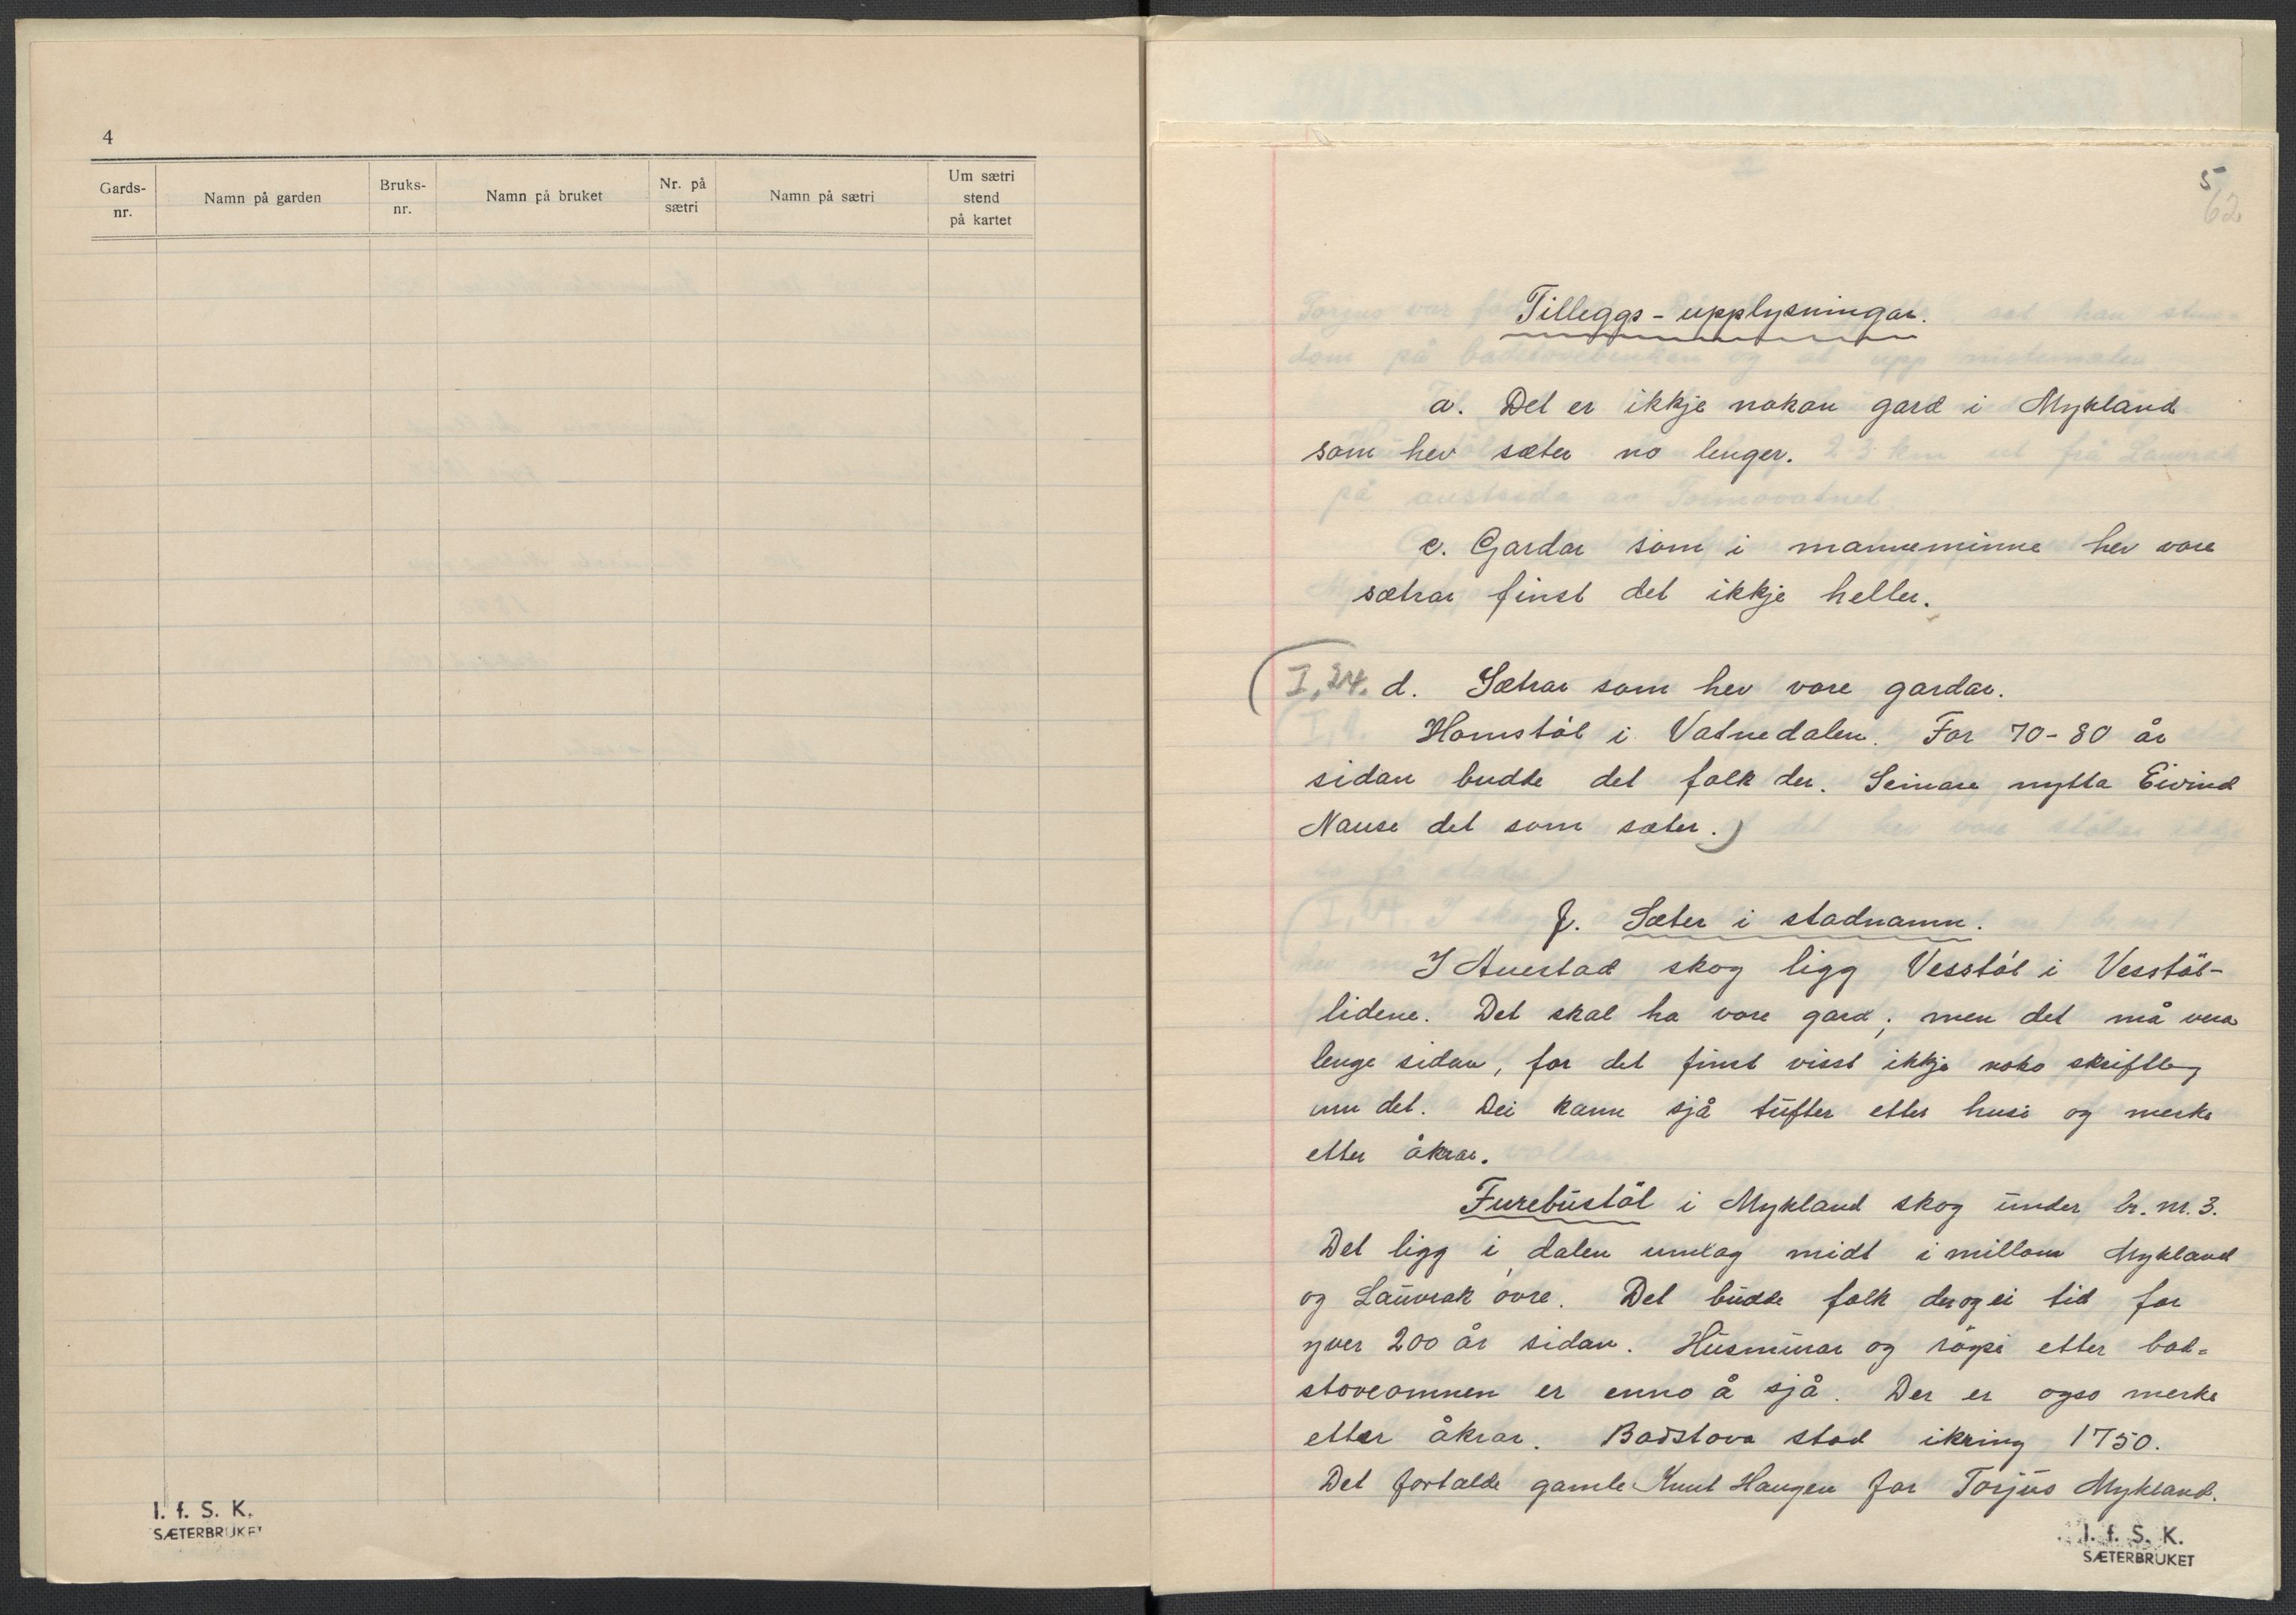 4
Gards-
nr.
Namn på garden
Bruks-
nr.
Namn på bruket
Nr. på
sætri
Namn på sætri
Um sætri
stend
på kartet
I. f. S. K.
SÆTERBRUKET
5
62
Tilleggs-upplysningar.
a. Det er ikkje nokon gard i Mykland
som hev sæter no lenger.
c. Gardar som i manneminne hev vore
sætrar finst det ikkje heller.
(I, 24. d. Sætrar som hev vore gardar.
Homstøl i Vatnedalen. For 70-80 år
sidan budde det folk der. Seinare nytta Eivind
Nause det som sæter.)
f. Sæter i stadnamn.
I Auestad skog ligg Vesstøl i Vesstøl-
lidene. Det skal ha vore gard; men det må vera
lenge sidan, for det finst visst ikkje noko skriftleg
um det. Dei kann sjå tufter etter husi og merke
etter åkrar.
Furebustøl i Mykland skog under br. nr. 3.
Det ligg i dalen umlag midt i millom Mykland
og Lauvrak øvre. Det budde folk der og ei tid for
yver 200 år sidan. Husmurar og røysi etter bad-
stoveomnen er enno å sjå. Der er ogso merke
etter åkrar. Badstova stod ikring 1750.
Det fortalde gamle Knut Haugen for Torjus Mykland.
I. f. S. K.
SÆTERBRUKET